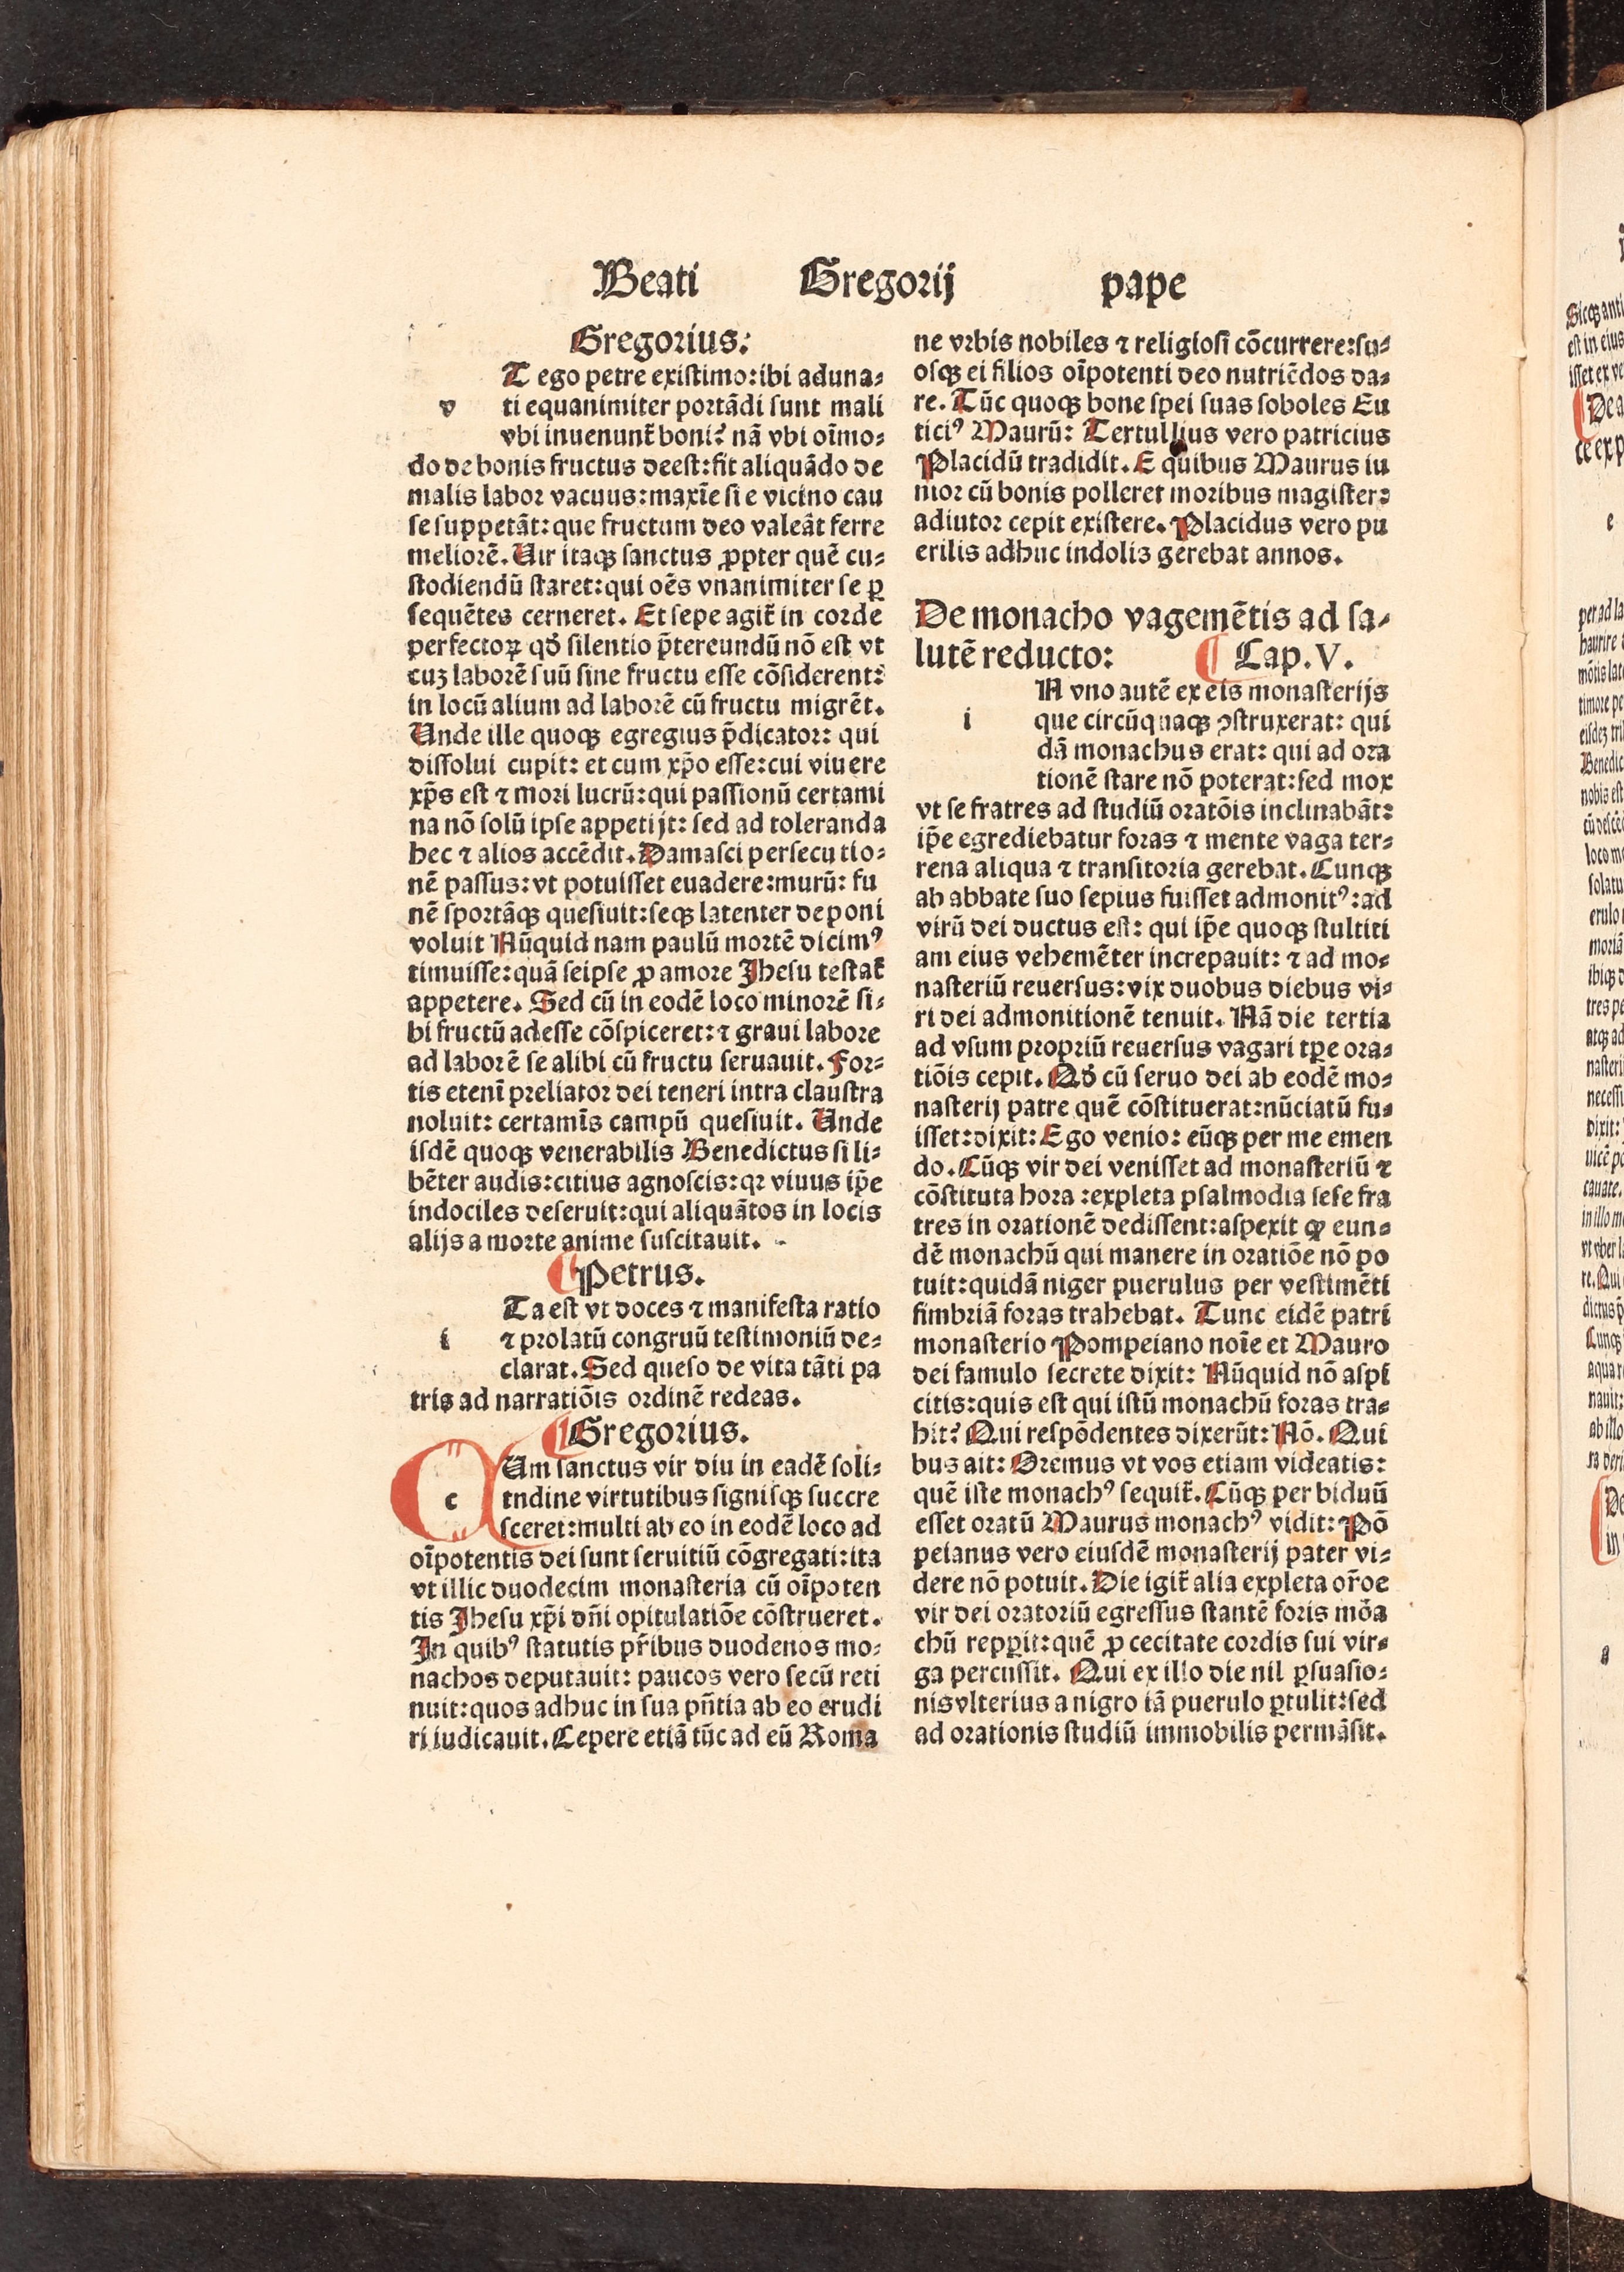 Beati Gregorij pape
Gregorius:
T ego petre existimo:ibi aduna⸗
v ti equanimiter portādi sunt mali
vbi inuenunt̄ boni? nā vbi oīmo⸗
do de bonis fructus deest:fit aliquādo de
malis labor vacuus:maxīe si e vicino cau
se suppetāt:que fructum deo valeāt ferre
meliorē. Uir itaqꝫ sanctus ꝓpter quē cu⸗
stodiendū staret:qui oēs vnanimiter se ꝑ
sequētes cerneret. Et sepe agit̄ in corde
perfectoꝝ qđ silentio p̄tereundū nō est vt
cuꝫ laborē suū sine fructu esse cōsiderent:
in locū alium ad laborē cū fructu migrēt.
Unde ille quoqꝫ egregius p̄dicator: qui
dissolui cupit: et cum xp̄o esse:cui viuere
xp̄s est ⁊ mori lucrū:qui passionū certami
na nō solū ipse appetijt: sed ad toleranda
hec ⁊ alios accēdit. Damasci persecutio⸗
nē passus:vt potuisset euadere:murū: fu
nē sportāqꝫ quesiuit:seqꝫ latenter deponi
voluit Nūquid nam paulū mortē dicimꝰ
timuisse:quā seipse ꝓ amore Jhesu testat̄
appetere. Sed cū in eodē loco minorē si⸗
bi fructū adesse cōspiceret:⁊ graui labore
ad laborē se alibi cū fructu seruauit. For⸗
tis etenī preliator dei teneri intra claustra
noluit: certamīs campū quesiuit. Unde
isdē quoqꝫ venerabilis Benedictus si li⸗
bēter audis:citius agnoscis:qꝛ viuus ip̄e
indociles deseruit:qui aliquātos in locis
alijs a morte anime suscitauit.
¶Petrus.
Ta est vt doces ⁊ manifesta ratio
i ⁊ prolatū congruū testimoniū de⸗
clarat. Sed queso de vita tāti pa
tris ad narratiōis ordinē redeas.
¶Gregorius.
Um sanctus vir diu in eadē soli⸗
c tndine virtutibus signisqꝫ succre
sceret:multi ab eo in eodē loco ad
oīpotentis dei sunt seruitiū cōgregati:ita
vt illic duodecim monasteria cū oīpoten
tis Jhesu xp̄i dn̄i opitulatiōe cōstrueret.
In quibꝰ statutis pr̄ibus duodenos mo⸗
nachos deputauit: paucos vero secū reti
nuit:quos adhuc in sua pn̄tia ab eo erudi
ri iudicauit. Cepere etiā tūc ad eū Roma
ne vrbis nobiles ⁊ religiosi cōcurrere:su⸗
osqꝫ ei filios oīpotenti deo nutriēdos da⸗
re. Tūc quoqꝫ bone spei suas soboles Eu
ticiꝰ Maurū: Tertullius vero patricius
Placidū tradidit. E quibus Maurus iu
nior cū bonis polleret moribus magister⸗
adiutor cepit existere. Placidus vero pu
erilis adhuc indolis gerebat annos.
De monacho vagemētis ad sa⸗
lutē reducto: ¶ Cap.V.
N vno autē ex eis monasterijs
i que circūquaqꝫ ꝯstruxerat: qui
dā monachus erat: qui ad ora
tionē stare nō poterat:sed mox
vt se fratres ad studiū oratōis inclinabāt:
ip̄e egrediebatur foras ⁊ mente vaga ter⸗
rena aliqua ⁊ transitoria gerebat. Cunqꝫ
ab abbate suo sepius fuisset admonitꝰ:ad
virū dei ductus est: qui ip̄e quoqꝫ stultiti
am eius vehemēter increpauit: ⁊ ad mo⸗
nasteriū reuersus:vix duobus diebus vi⸗
ri dei admonitionē tenuit. Nā die tertia
ad vsum propriū reuersus vagari tꝑe ora⸗
tiōis cepit. Qđ cū seruo dei ab eodē mo⸗
nasterij patre quē cōstituerat:nūciatū fu⸗
isset:dixit: Ego venio: eūqꝫ per me emen
do. Cūqꝫ vir dei venisset ad monasteriū ⁊
cōstituta hora :expleta psalmodia sese fra
tres in orationē dedissent:aspexit ꝙ eun⸗
dē monachū qui manere in oratiōe nō po
tuit:quidā niger puerulus per vestimēti
fimbriā foras trahebat. Tunc eidē patri
monasterio Pompeiano noīe et Mauro
dei famulo secrete dixit: Nūquid nō aspi
citis:quis est qui istū monachū foras tra⸗
hit? Qui respōdentes dixerūt: Nō. Qui
bus ait: Oremus vt vos etiam videatis:
quē iste monachꝰ sequit̄. Cūqꝫ per biduū
esset oratū Maurus monachꝰ vidit: Pō
peianus vero eiusdē monasterij pater vi⸗
dere nō potuit. Die igit̄ alia expleta or̄oe
vir dei oratoriū egressus stantē foris mōa
chū repꝑit:quē ꝓ cecitate cordis sui vir⸗
ga percussit. Qui ex illo die nil ꝑsuasio⸗
nis vlterius a nigro iā puerulo ꝑtulit:sed
ad orationis studiū immobilis permāsit.